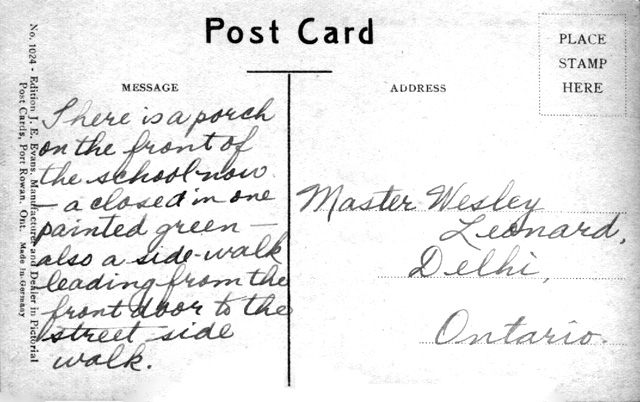 Post Card
PLACE
STAMP
HERE
MESSAGE
ADDRESS
No. 1024 - Edition J. E. Evans, Manufacturer and Dealer in Pictorial
Post Cards, Port Rowan, Ont. Made in Germany
There is a porch
on the front of
the school now
— a closed in one
painted green —
also a side-walk
leading from the
front door to the
street side
walk.
Master Wesley
Leonard,
Delhi,
Ontario.